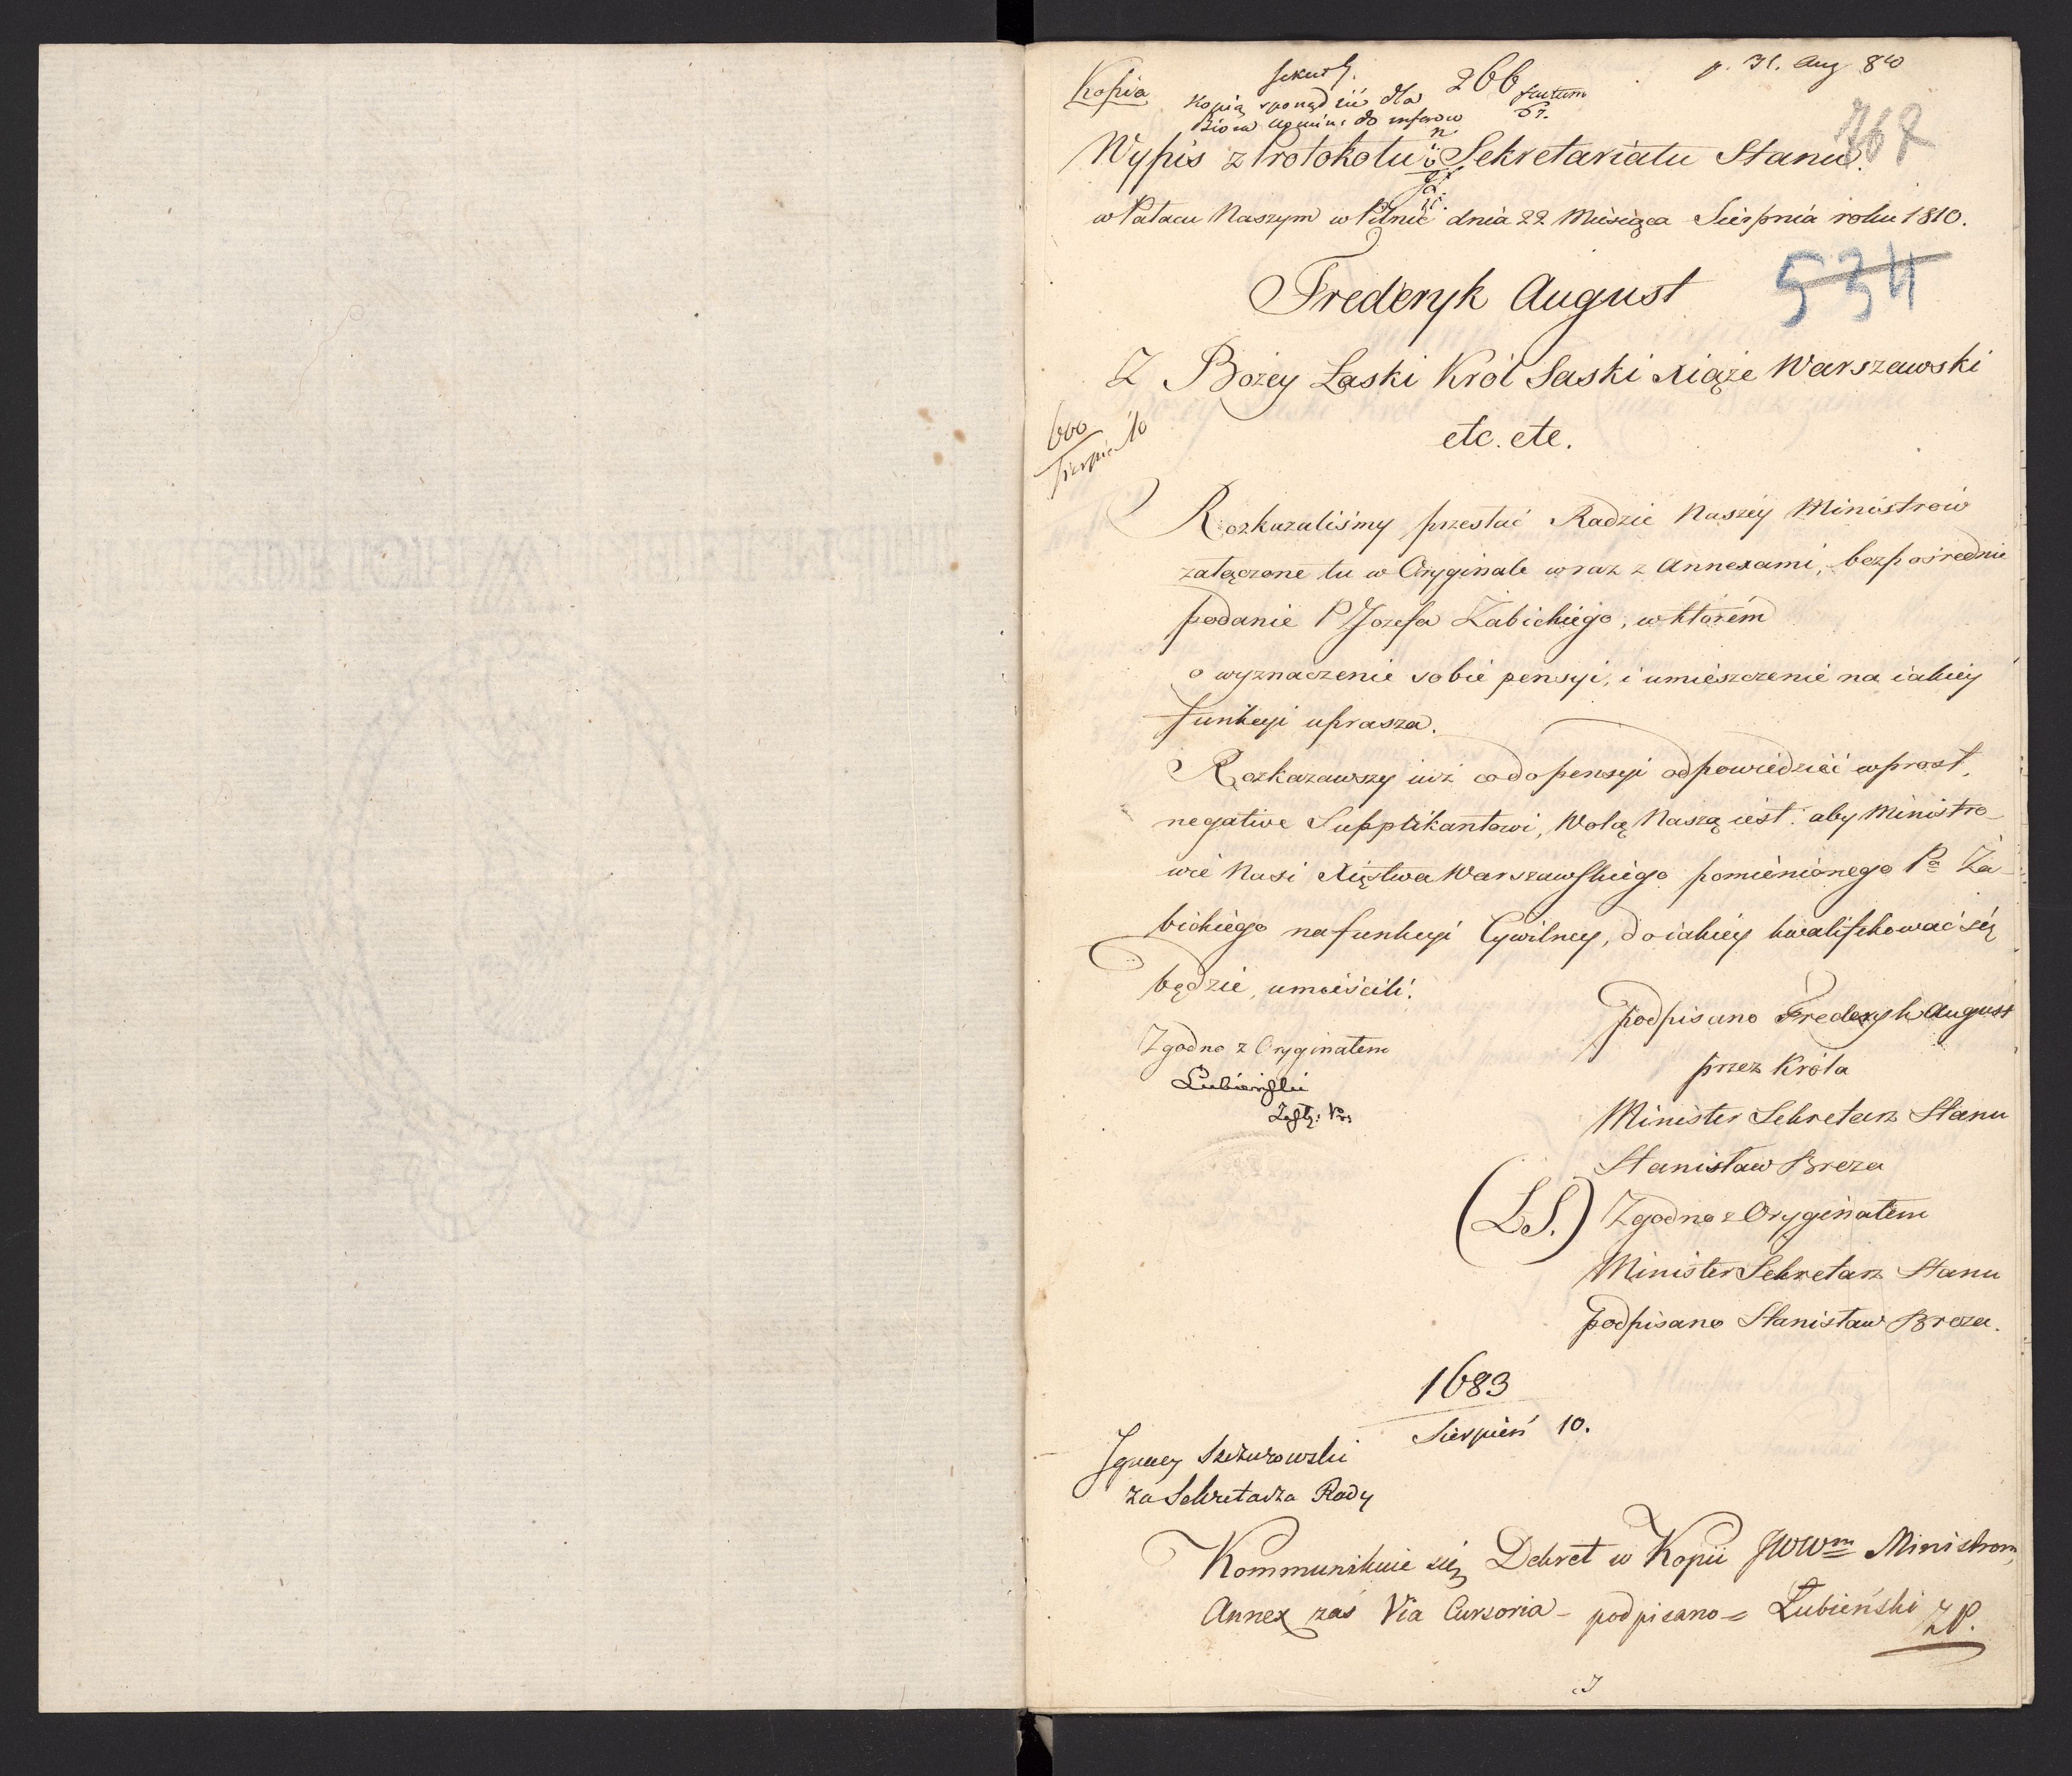 Kopia
266
p. 31. Aug 810
Kopią sporządzić dla
factum
767
Wypis z Protokołu Sekretariatu Stanu.
w Pałacu Naszym w Pilnic dnia 22 Miesiąca Sierpnia roku 1810.
534
Frederyk August
Z Bożey Łaski Król Saski Xiąże Warszawski
etc. etc.
600
Sierpień 10
Rozkazaliśmy przesłać Radzie Naszéy Ministrów
załączone tu w Oryginale wraz z Annexami, bezpośrednie
podanie P Jozefa Żabickiego, w którém
o wyznaczenie sobie pensyi, i umieszczenie na iakiey
funkcyi uprasza.
Rozkazawszy iuż co do pensyi odpowiedzieć wprost,
negative Supplikantowi, Wolą Naszą iest. aby Ministro-
wie Nasi Xięstwa Warszawskiego pomienionego Pa Ża-
bickiego na funkcyi Cywilney, do iakiey kwalifikować się
będzie, umieścili.
podpisano Frederyk August
Zgodno z Oryginałem
przez Króla
Lubieński
Zastę: Prs
Minister Sekretarz Stanu
Stanisław Breza
(L.S.) Zgodno z Oryginałem
Minister Sekretarz Stanu
podpisano Stanisław Breza.
1683
Sierpień 10.
Ignacy Szczurowski
za Sekretarza Rady
Kommunikuie się Dekret w Kopii JWWm Ministrom,
Annex zaś Via Cursoria - podpisano = Łubieński ZP.